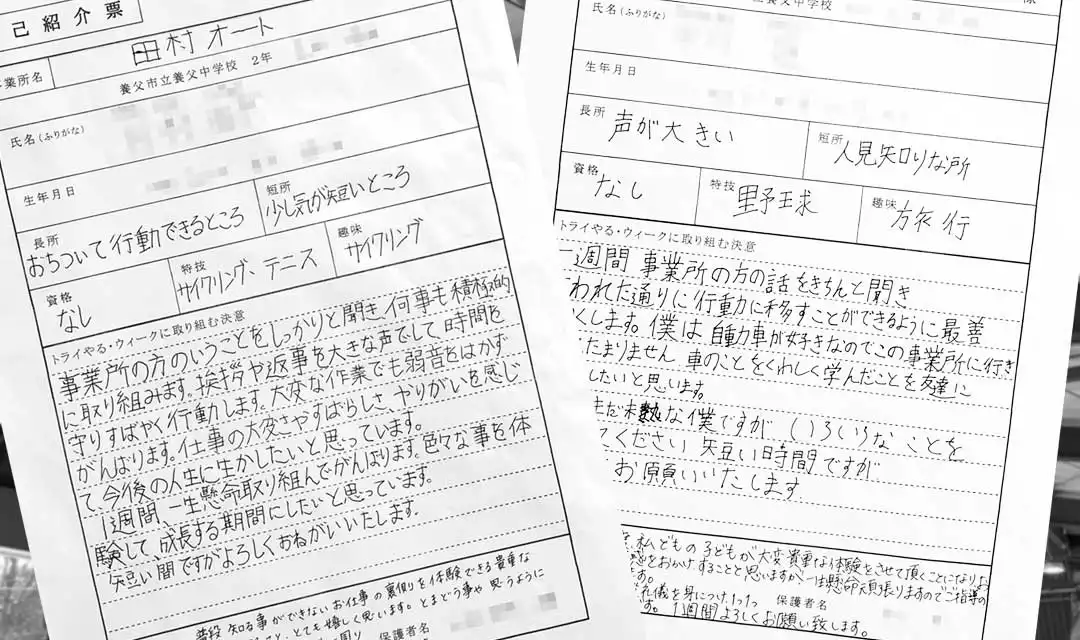 己紹介票
事業所名
田村オート
養父市立養父中学校 2年
氏名(ふりがな)
生年月日
長所
おちついて行動できるところ
短所
少し気が短いところ
資格
なし
特技
サイクリング、テニス
趣味
サイクリング
トライやる・ウィークに取り組む決意
事業所の方のいうことをしっかりと聞き、何事も積極的
に取り組みます。挨拶や返事を大きな声でして、時間を
守りすばやく行動します。大変な作業でも弱音をはかず
がんばります。仕事の大変さやすばらしさ、やりがいを感じ
て今後の人生に生かしたいと思っています。
1週間、一生懸命取り組んでがんばります。色々な事を体
験して、成長する期間にしたいと思っています。
短い間ですがよろしくおねがいいたします。
普段知る事ができないお仕事の裏側を体験できる貴重な
とても嬉しく思います。とまどう事や思うように
保護者名
立養父中学校
氏名(ふりがな)
生年月日
長所
声が大きい
短所
人見知りな所
資格
なし
特技
野球
趣味
旅行
トライやる・ウィークに取り組む決意
一週間事業所の方の話をきちんと聞き
われた通りに行動に移すことができるように最善
くします。僕は自動車が好きなのでこの事業所に行き
たまりません 車のことをくわしく学んだことを友達に
したいと思います。
まだ未熟な僕ですが、いろいろなことを
てください 短い時間ですが
お願いいたします
私どもの子どもが大変貴重な体験をさせて頂くことになり
をおかけすることと思いますが一生懸命頑張りますのでご指導の
す。
礼儀を身につけ
保護者名
す。1週間よろしくお願い致します。